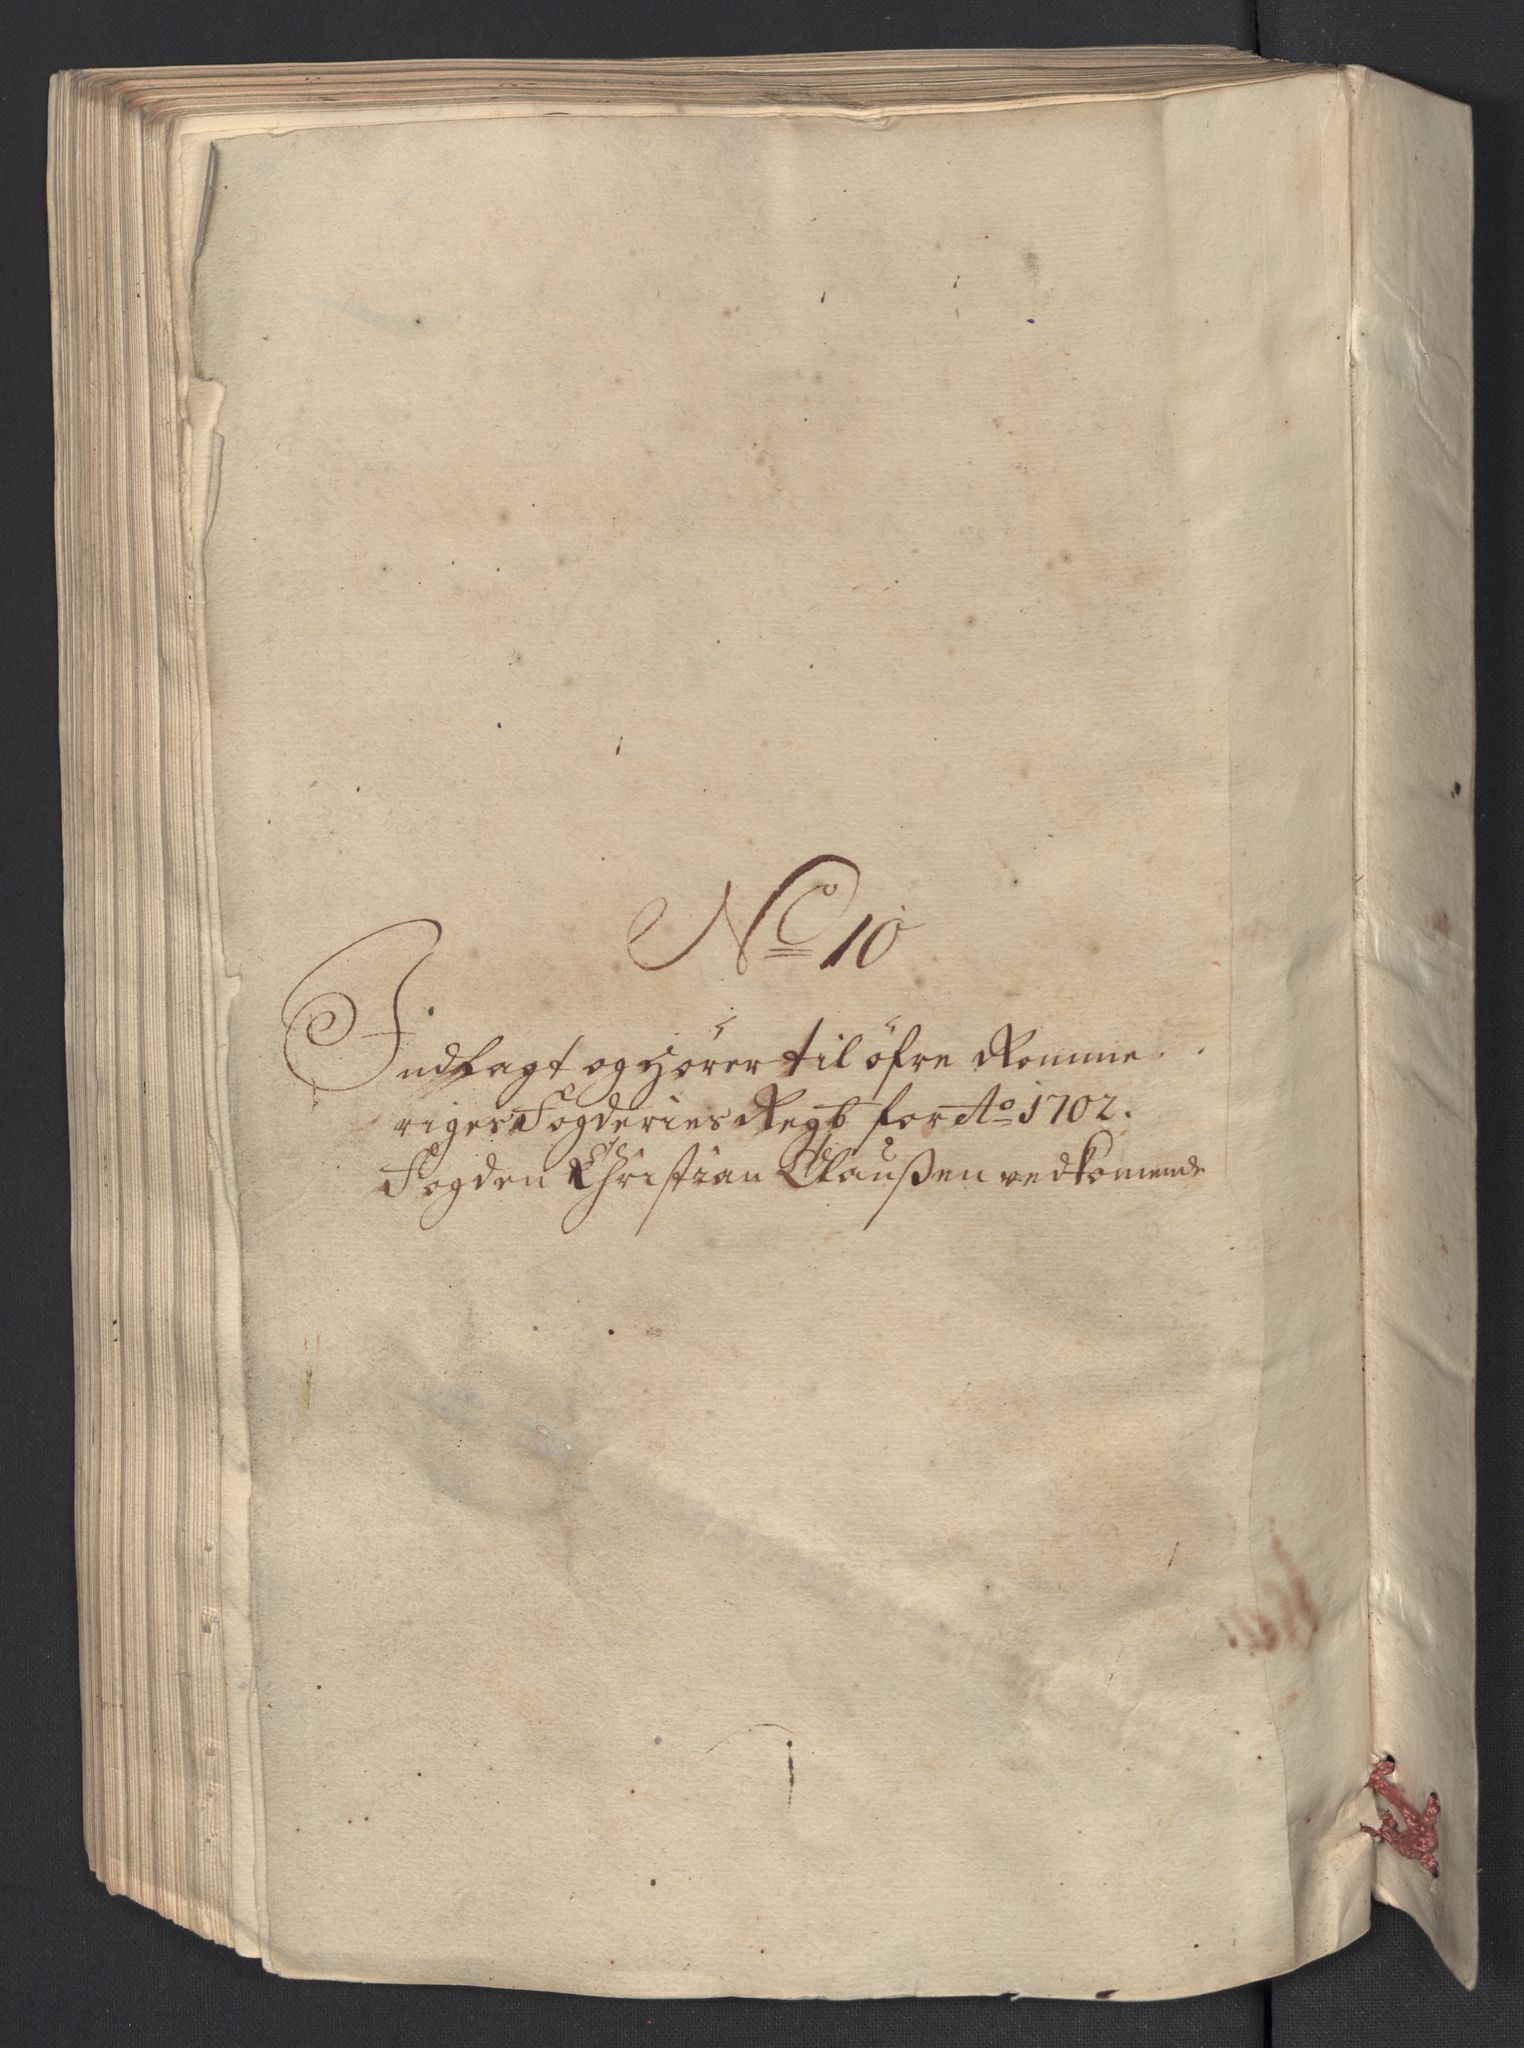 No 10
Indlagt og hörer til öfre Romme
riges Fogderies Regb for Ao 1702.
Fogden Christian Claußen vedkomende